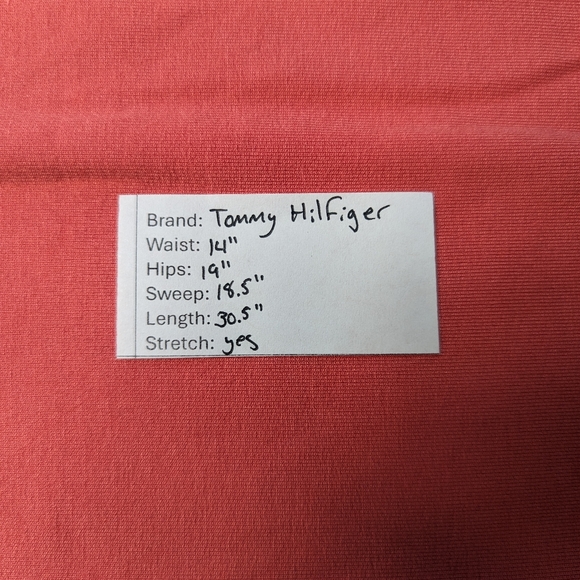 Brand: Tommy Hilfiger
Waist: 14"
Hips: 19"
Sweep: 18.5"
Length: 30.5"
Stretch: yes